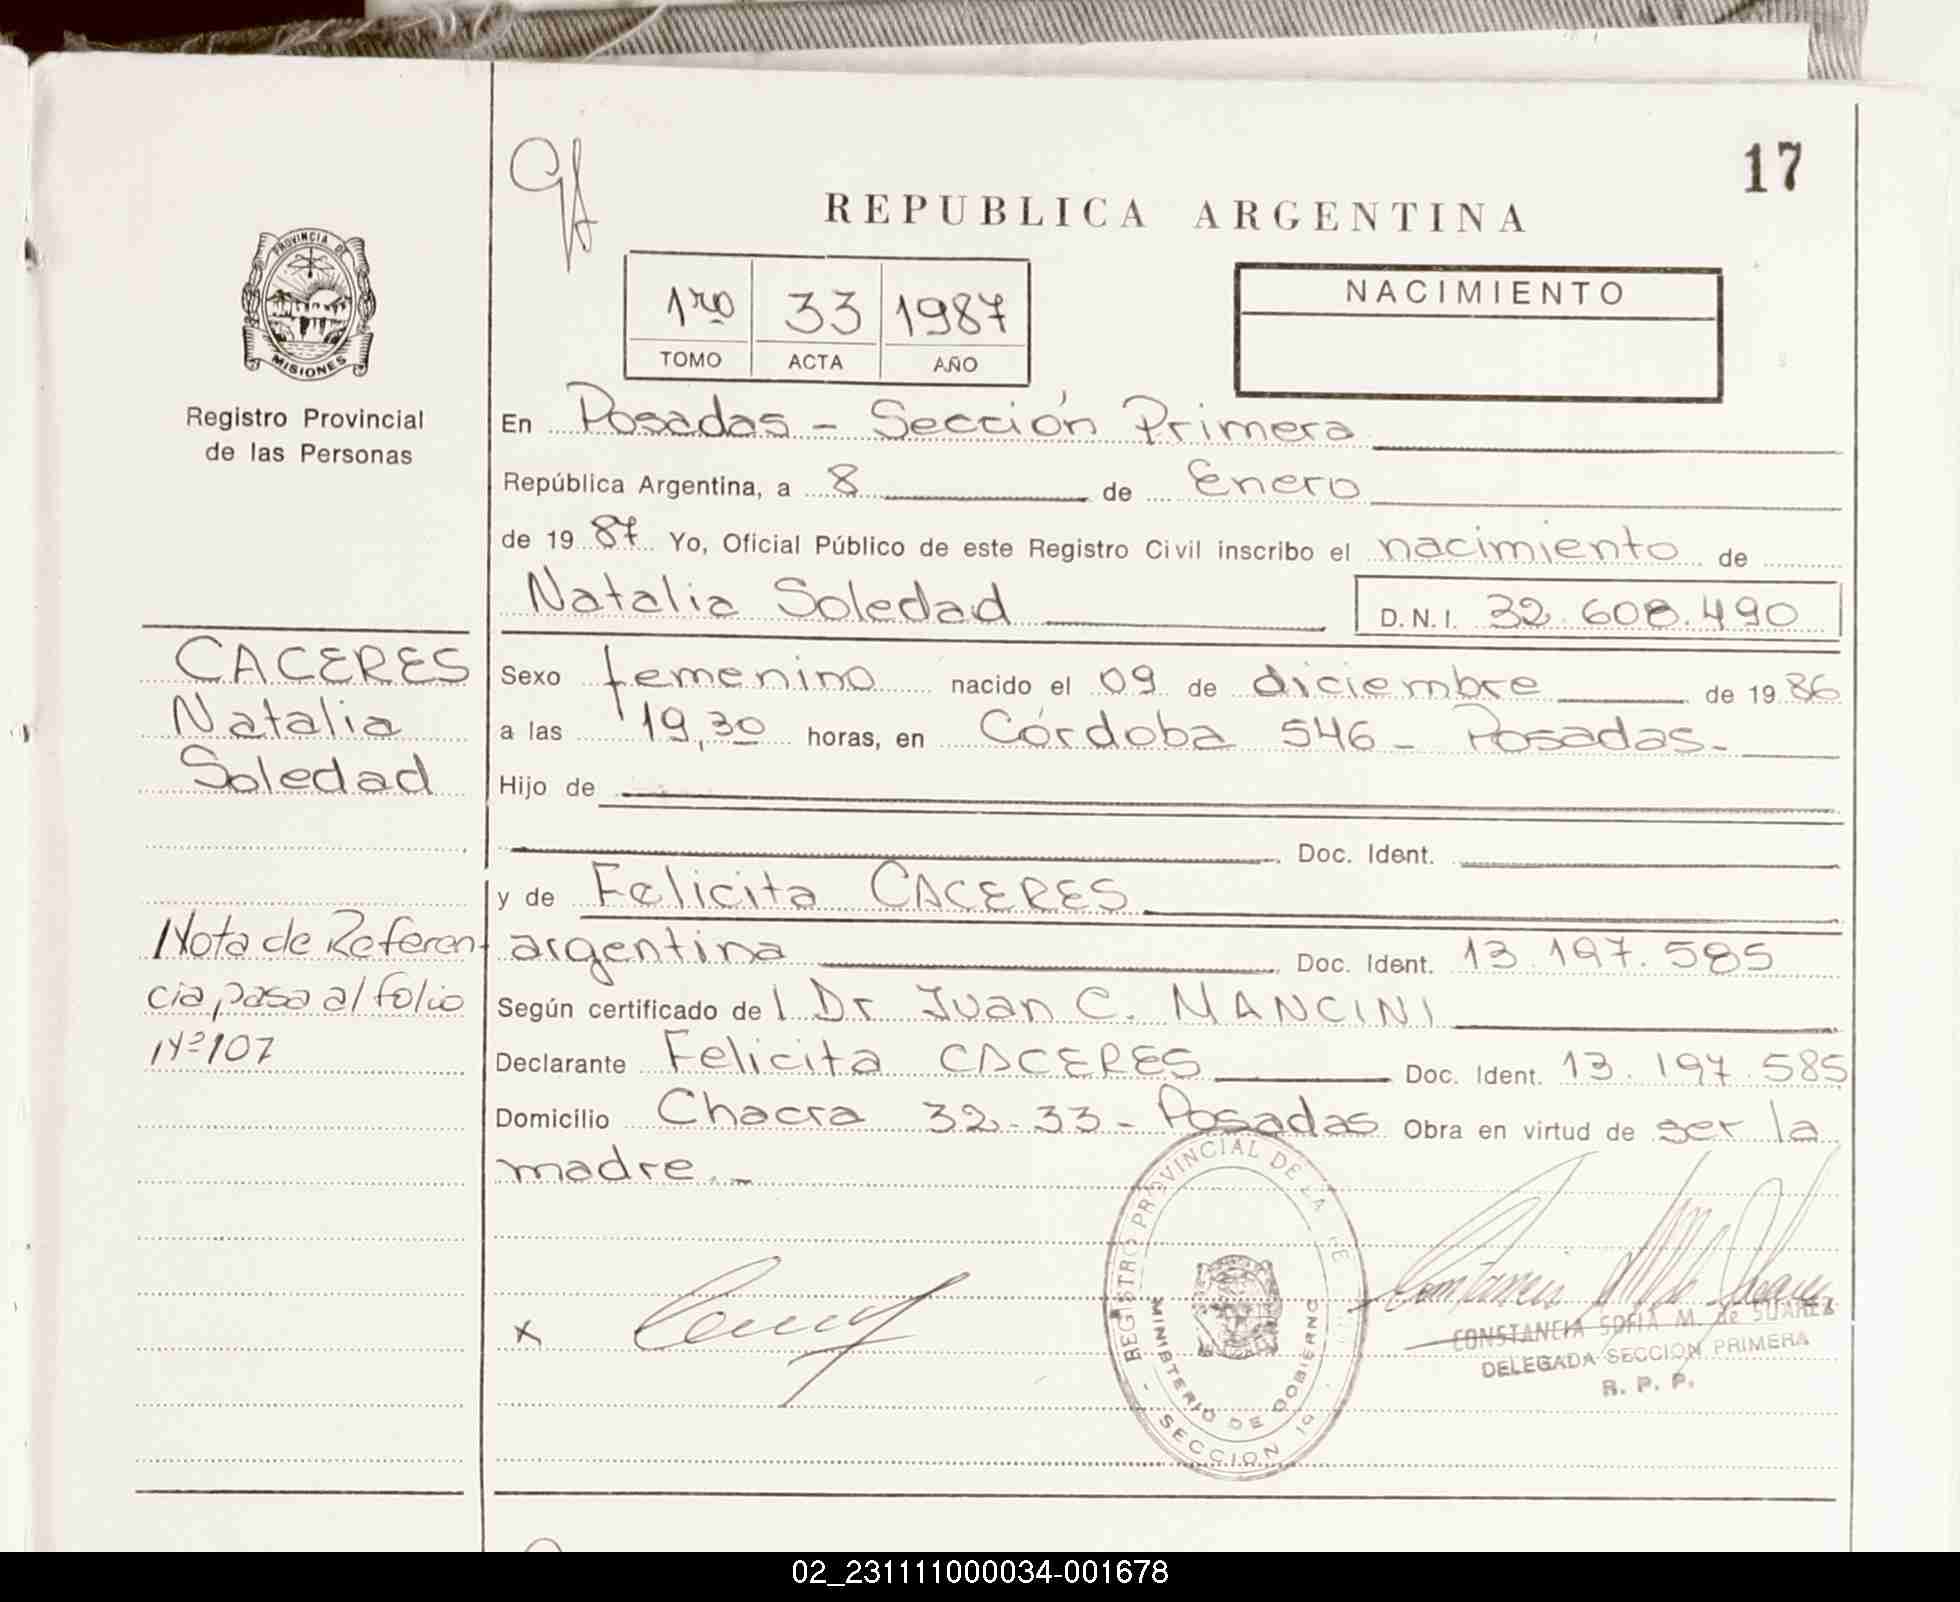 17
REPUBLICA ARGENTINA
PROVINCIA DE
MISIONES
Registro Provincial
de las Personas
1ro 33 1987
TOMO ACTA AÑO
NACIMIENTO
En Posadas - Sección Primera
República Argentina, a 8 de Enero
de 1987 Yo, Oficial Público de este Registro Civil inscribo el nacimiento de
Natalia Soledad D.N.I. 32.608.490
CACERES
Natalia
Soledad
Sexo femenino nacido el 09 de diciembre de 1986
a las 19,30 horas, en Córdoba 546 - Posadas.
Hijo de
Doc. Ident.
y de Felicita CACERES
argentina Doc. Ident. 13.197.585
Nota de Referen
cia, pasa al folio
Nº 107
Según certificado del Dr Juan C. MANCINI
Declarante Felicita CACERES Doc. Ident. 13.197.585
Domicilio Chacra 32-33 - Posadas Obra en virtud de ser la
madre.-
x
REGISTRO PROVINCIAL DE LA
MINISTERIO DE GOBIERNO
- SECCION 1º
CONSTANCIA SOFIA M. de SUAREZ
DELEGADA SECCION PRIMERA
R. P. P.
02_231111000034-001678